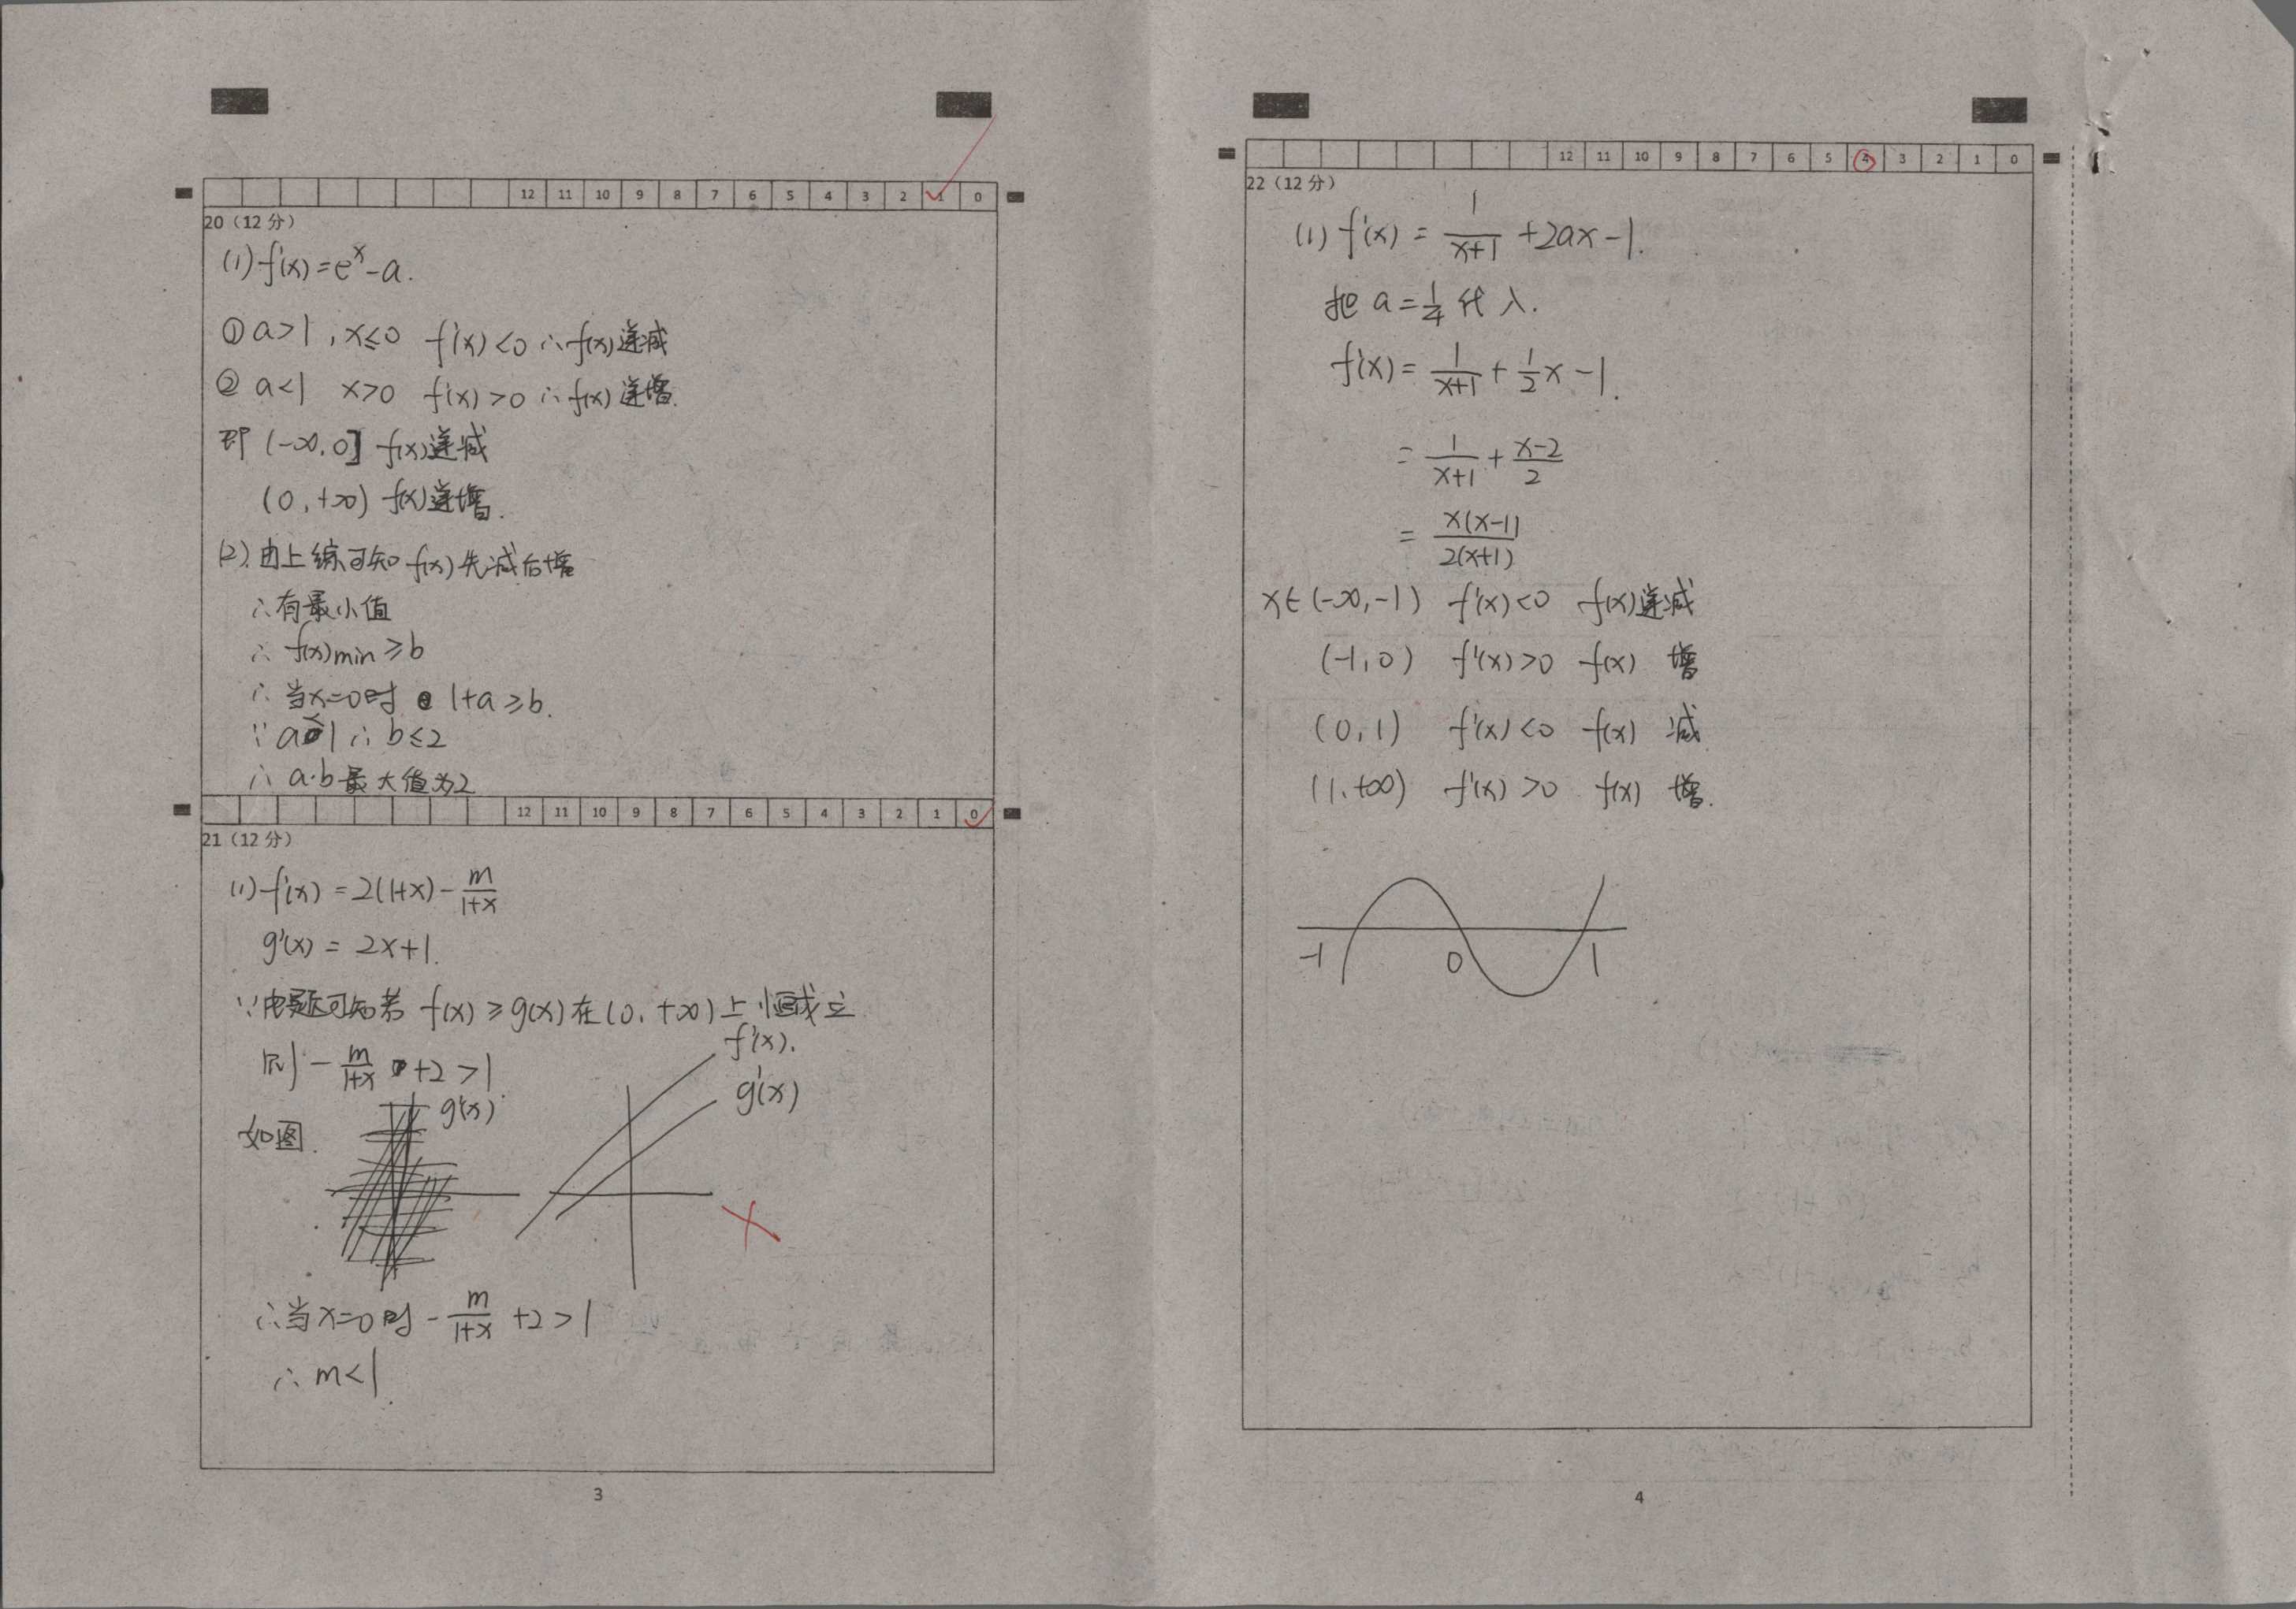 12 11 10 9 8 7 6 5 4 3 2 1 0
20（12 分）
(1) f'(x)=e^x-a.
① a>1 , x≤0 f'(x)<0 ∴f(x)递减
② a<1 x>0 f'(x)>0 ∴f(x)递增.
即 (-∞,0] f(x)递减
(0,+∞) f(x)递增.
(2).由上综可知 f(x)先减后增
∴有最小值
∴ f(x)min≥b
∴ 当x=0时 1+a≥b.
∵ a 1 ∴ b≤2
∴ a·b最大值为2
12 11 10 9 8 7 6 5 4 3 2 1 0
21（12 分）
(1) f'(x) = 2(1+x) - m/(1+x)
g'(x) = 2x+1.
∵由题可知若 f(x)≥g(x)在(0,+∞)上恒成立
则 - m/(1+x) +2>1
f'(x).
g'(x)
g'(x)
如图.
∴当x=0时 - m/(1+x) +2>1
∴ m<1.
3
12 11 10 9 8 7 6 5 4 3 2 1 0
22（12 分）
(1) f'(x) = 1/(x+1) +2ax-1.
把 a=1/4 代入.
f'(x) = 1/(x+1) + 1/2x-1.
= 1/(x+1) + (x-2)/2
= x(x-1)/2(x+1)
x∈(-∞,-1) f'(x)<0 f(x)递减
(-1,0) f'(x)>0 f(x) 增
(0,1) f'(x)<0 f(x) 减
(1,+∞) f'(x)>0 f(x) 增.
-1 0 1
4